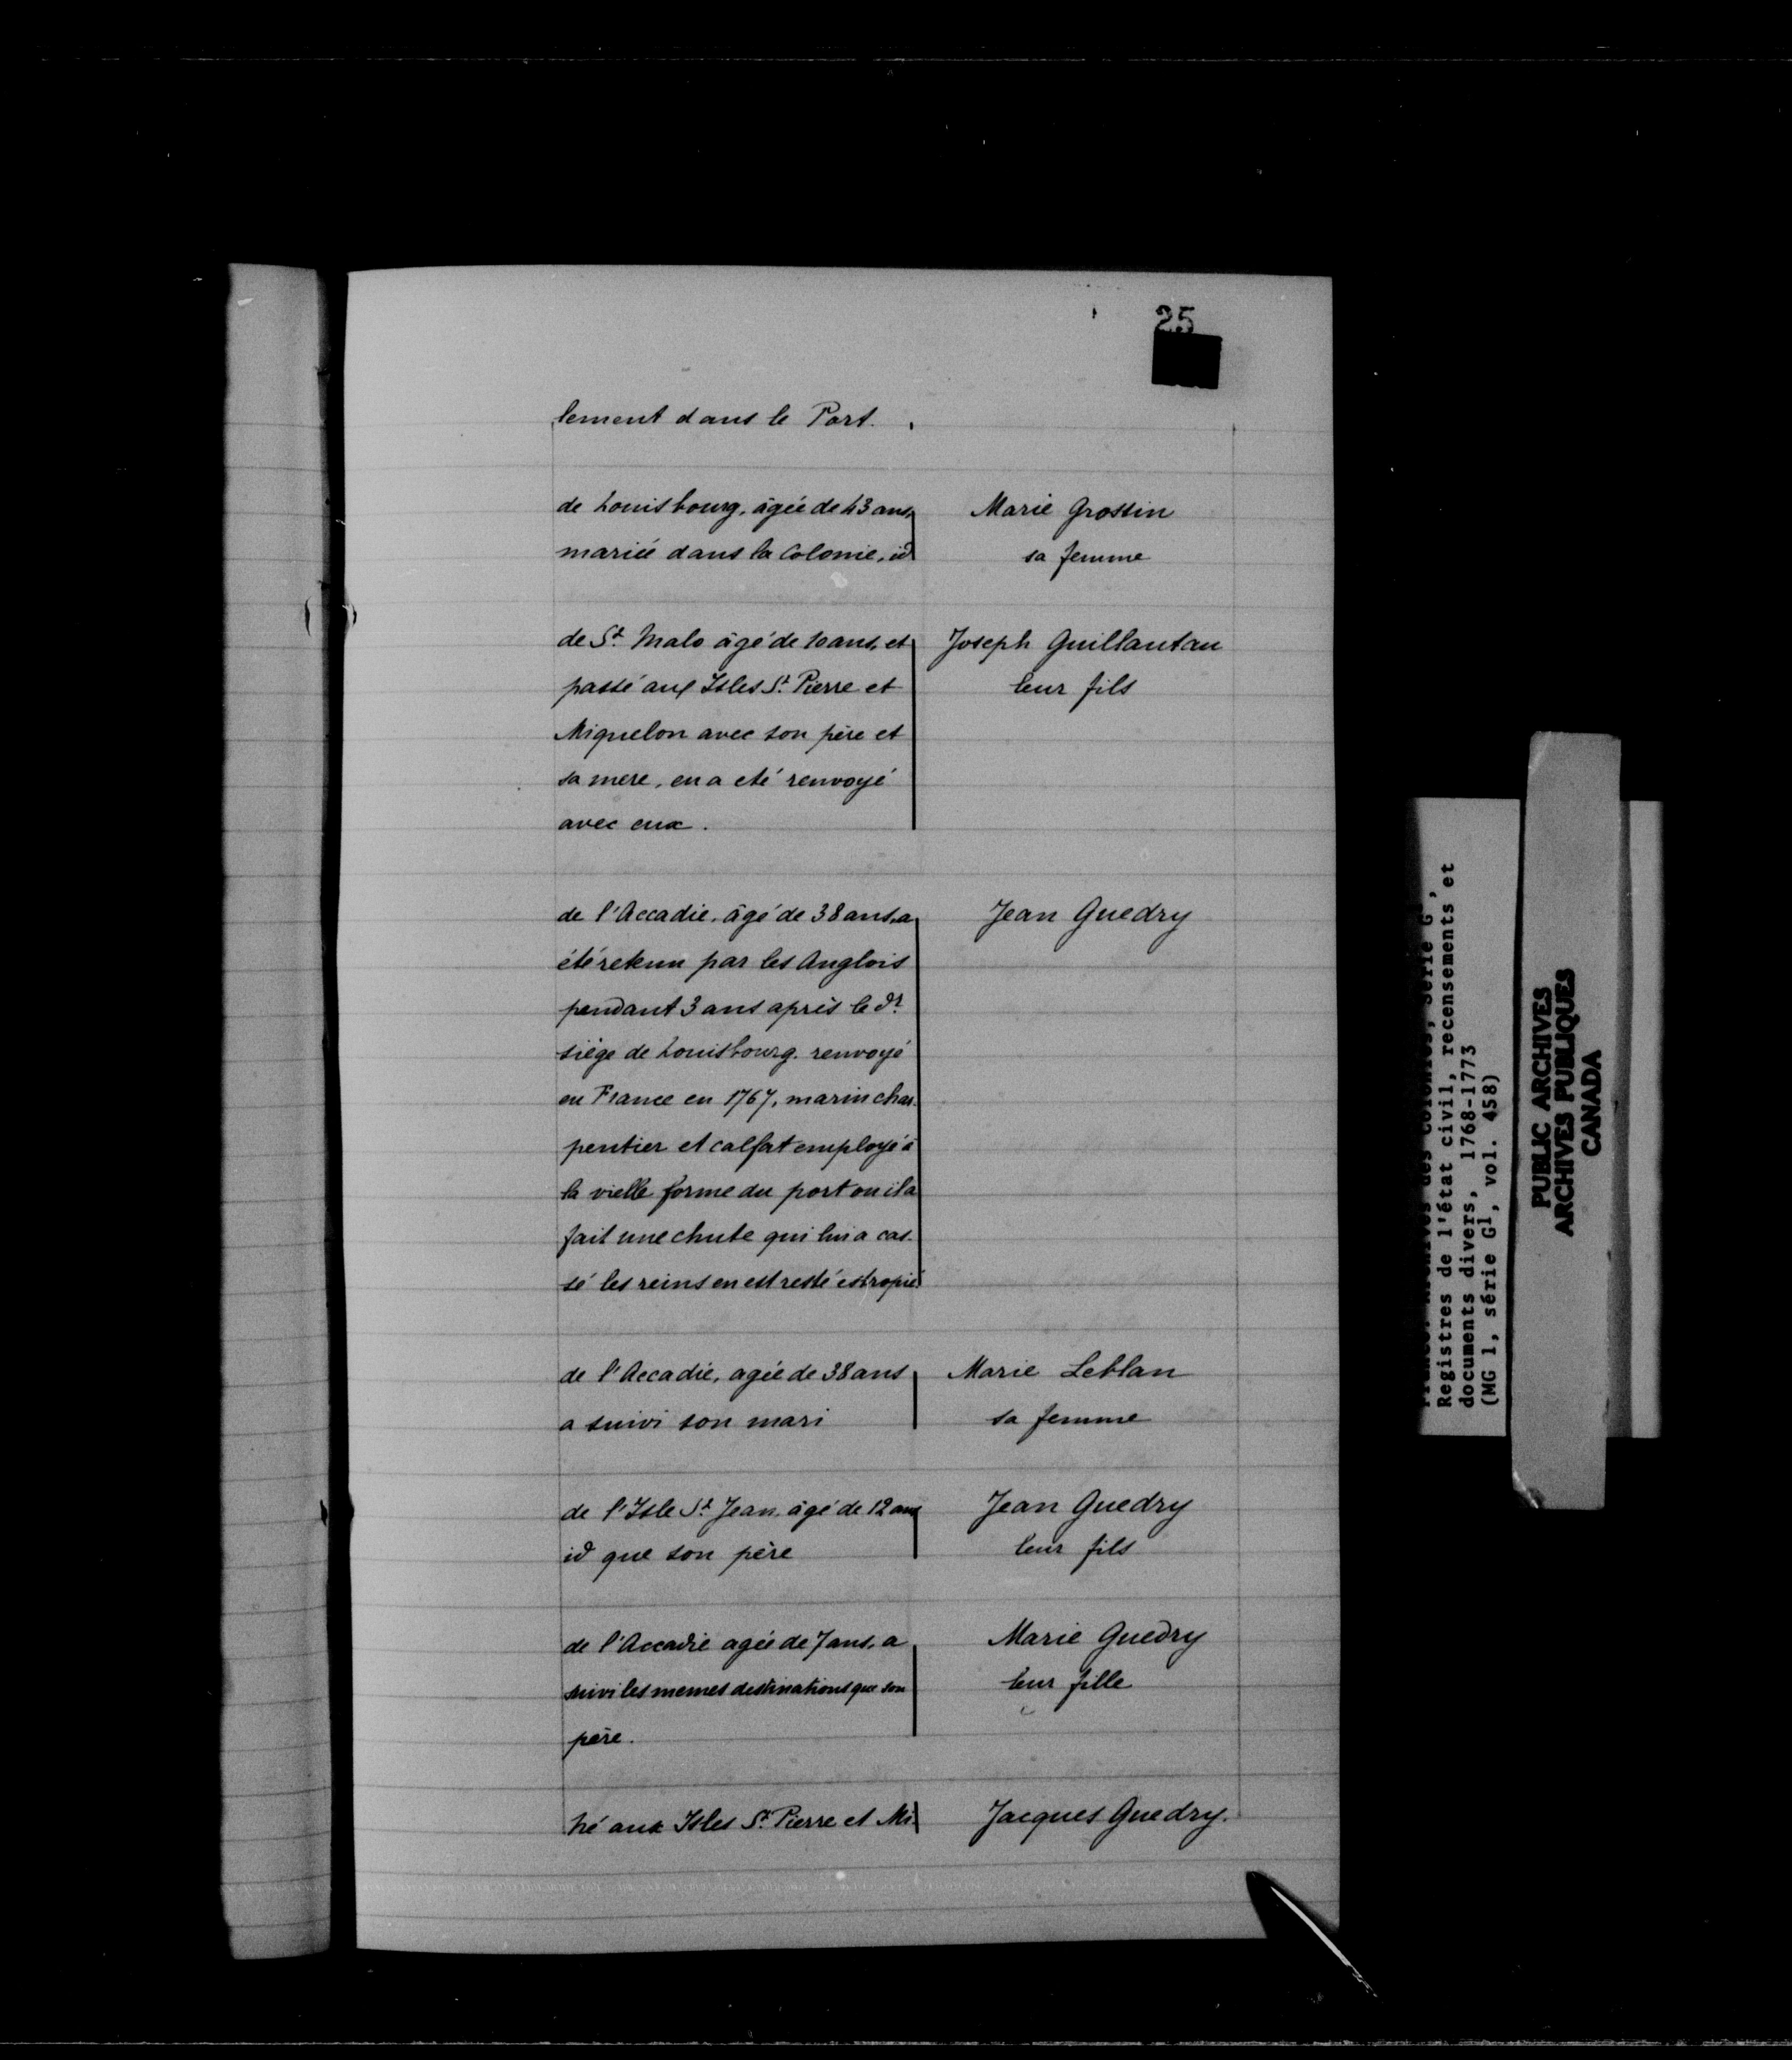 25
lement dans le Port.
de Louisbourg, âgée de 43 ans,
mariée dans la Colonie, id
Marie Grossin
sa femme
de St. Malo âgé de 10 ans, et
passé aux Isles St. Pierre et
Miquelon avec son père et
sa mere, en a eté renvoyé
avec eux.
Joseph Guillautau
leur fils
de l'Accadie, âgé de 38 ans, a
été retenu par les Anglois
pendant 3 ans après le dr.
siège de Louisbourg. renvoyé
en France en 1767, marin char-
pentier et calfat employé à
la vielle forme du port ou il a
fait une chute qui lui a cas-
sé les reins en est resté estropié
Jean Guedry
de l'Accadie, agée de 38 ans
a suivi son mari
Marie Leblan
sa femme
de l'Isle St. Jean, âgé de 12 ans
id que son père
Jean Guedry
leur fils
de l'Accadie agée de 7 ans, a
suivi les memes destinations que son
père.
Marie Guedry
leur fille
né aux Isles St. Pierre et Mi-
Jacques Guedry.
Registres de l'état civil, recensements et
documents divers, 1768-1773
(MG 1, série G1, vol. 458)
PUBLIC ARCHIVES
ARCHIVES PUBLIQUES
CANADA